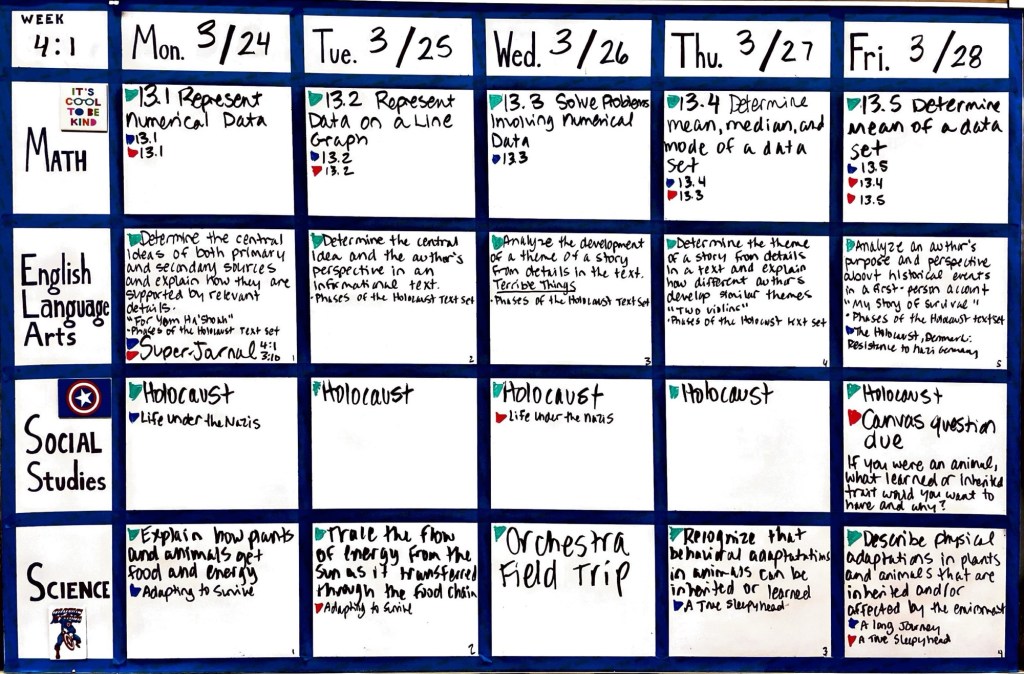 WEEK
4:1
Mon. 3/24
Tue. 3/25
Wed. 3/26
Thu. 3/27
Fri. 3/28
IT'S
COOL
TO BE
KIND
MATH
13.1 Represent
Numerical Data
13.1
13.1
13.2 Represent
Data on a Line
Graph
13.2
13.2
13.3 Solve Problems
Involving Numerical
Data
13.3
13.4 Determine
mean, median, and
mode of a data
set
13.4
13.3
13.5 Determine
mean of a data
set
13.5
13.4
13.5
English
Language
Arts
Determine the central
ideas of both primary
and secondary sources
and explain how they are
supported by relevant
details.
"For Yom Ha'shoah"
-Phases of the Holocaust Text set
Super-Jarnal 4:1
3:10
1
Determine the central
idea and the author's
perspective in an
informational text.
-Phases of the Holocaust Text Set
2
Analyze the development
of a theme of a story
from details in the text.
Terrible Things
-Phases of the Holocaust Text Set
3
Determine the theme
of a story from details
in a text and explain
how different authors
develop similar themes
"Two violins"
-Phases of the Holocaust text set
4
Analyze an author's
purpose and perspective
about historical events
in a first-person account
"My Story of Survival"
-Phases of the Holocaust text set
The Holocaust, Denmark:
Resistance to Nazi Germany
5
SOCIAL
Studies
Holocaust
Life Under the Nazis
Holocaust
Holocaust
Life Under the Nazis
Holocaust
Holocaust
Canvas question
due
If you were an animal,
what learned or inherited
trait would you want to
have and why?
SCIENCE
Explain how plants
and animals get
food and energy
Adapting to Survive
1
Trace the flow
of energy from the
sun as it transferred
through the food chain
Adapting to Survive
2
Orchestra
Field Trip
Recognize that
behavioral adaptatations
in animals can be
inherited or learned
A True Sleepyhead
3
Describe physical
adaptations in plants
and animals that are
inherited and/or
affected by the environment
A long Journey
A True Sleepyhead
4